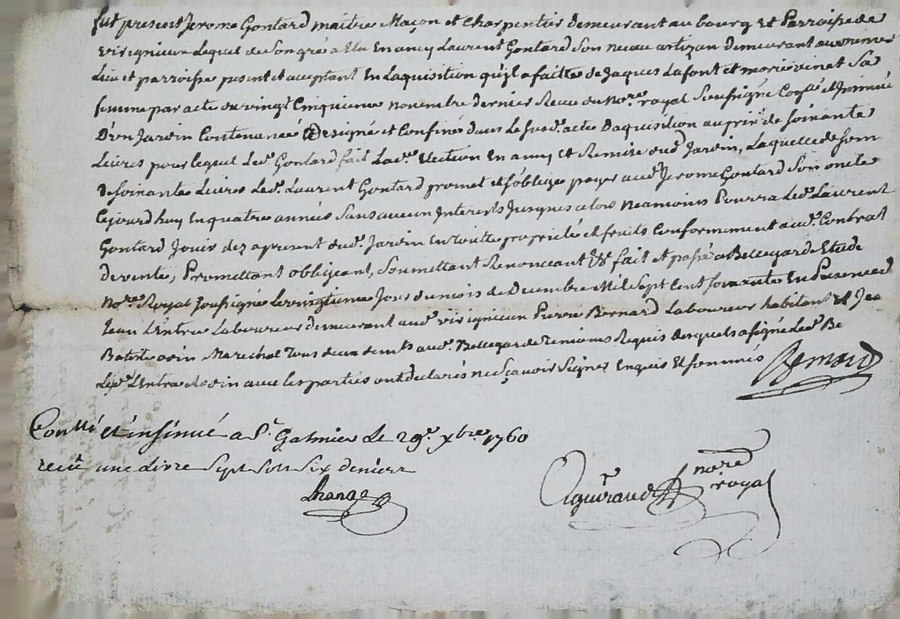 fut present Jerome Gontard maitre Maçon et Charpentier demeurant au bourg et Parroisse de
virignieux Lequel de Son gré a Elu En amy Laurent Gontard Son neveu artizan demeurant au meme
Lieu et parroisse present et acceptant En Laquisition qu'il a faitte de Jaques Lafont et marie vinet Sa
femme par acte du vingt Cinquieme novembre dernier Receu du No.re royal Soussigné
D'un Jardin Contenu designé et Confiné dans Le Susd. acte Daquisition au prix de Soixante
Livres pour lequel Led. Gontard fait Lad. Election En amy et Remise dud. Jardin, Laquelle de Som
de Soixante Livres Led. Laurent Gontard promet et s'oblige payer aud. Jerome Gontard Son oncle
dhuy En quatre années Sans aucun Interets Jusques alors neamoins Pourra Led. Laurent
Gontard Jouir dez apresent dud. Jardin En toutte proprieté et fruits Conformement aud. Contrat
de vente, Promettant obligeant, Soumettant Renonceant &c. fait et passé a Bellegarde Etude
no.re Royal Soussigné Le vingtieme Jour du mois de Decembre Mil Sept Cent Soixante En Presence de
Jean Laboureur demeurant aud. virignieux Pierre Bernard Laboureur habitant et Jea
Batiste Marechal tous deux aud. Bellegarde Temoins Requis desquels a signé Led. Be
avec les parties ont declarés ne Sçavoir Signer Enquis Et Sommés
Bernard
Con.llé et insinué a S.t Galmier Le 29.e xbre 1760
receu une Livre Sept Sols Six deniers
no.re
royal